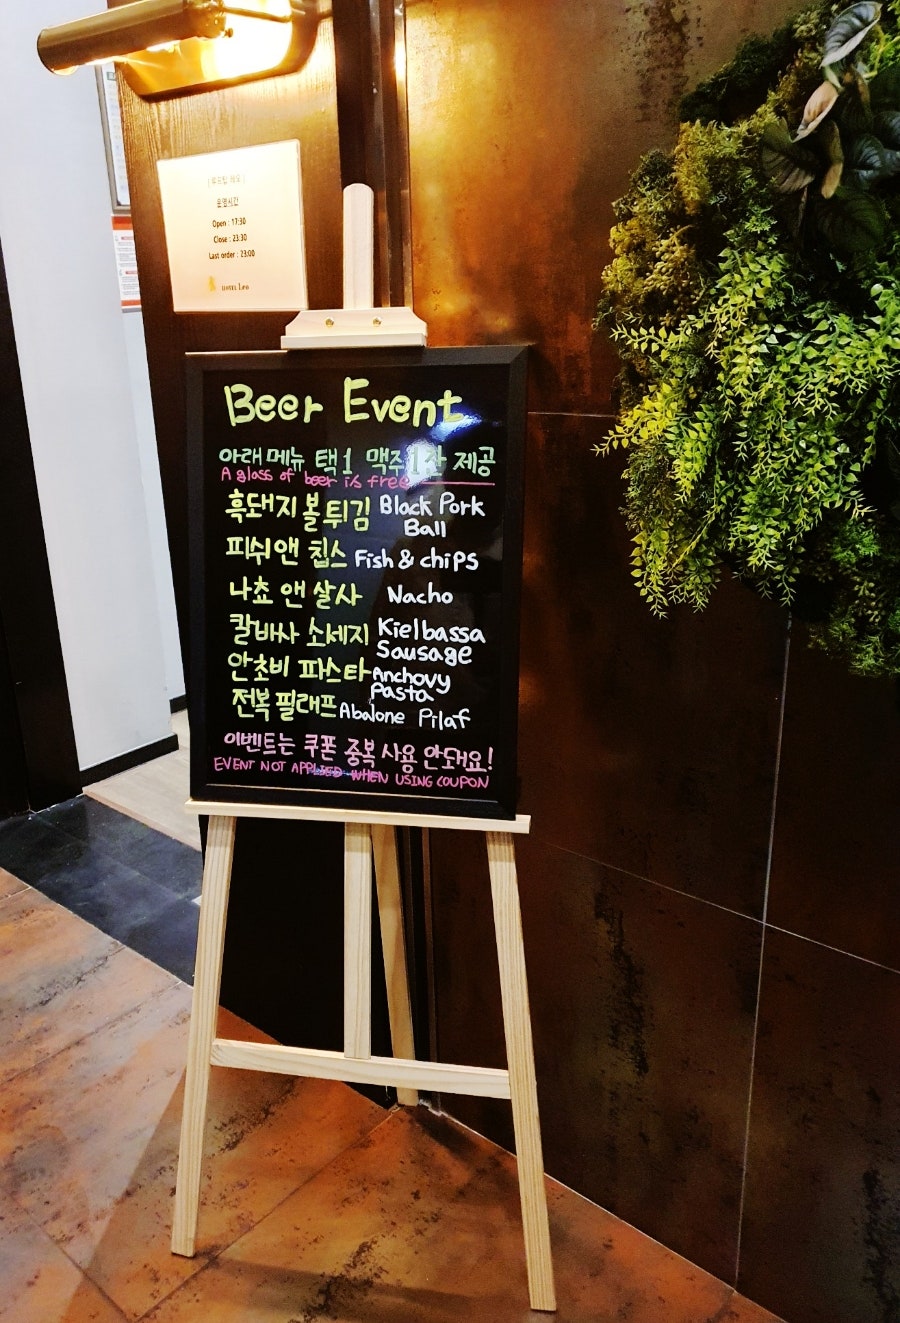 운영시간
Open : 17:30
Close : 23:30
Last order : 23:00
HOTEL Leo
Beer Event
아래 메뉴 택1 맥주 1잔 제공
A glass of beer is free
흑돼지 볼 튀김 Black Pork
Ball
피쉬앤 칩스 Fish & chips
나쵸 앤 살사 Nacho
칼바사 소세지 Kielbassa
Sausage
안초비 파스타 Anchovy
Pasta
전복 필래프 Abalone Pilaf
이벤트는 쿠폰 중복 사용 안돼요!
EVENT NOT APPLIED WHEN USING COUPON